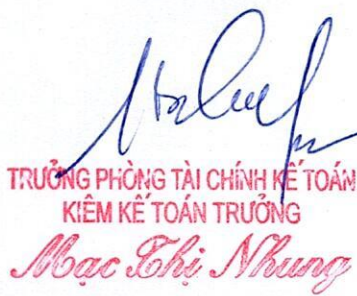 TRƯỞNG PHÒNG TÀI CHÍNH KẾ TOÁN
KIÊM KẾ TOÁN TRƯỞNG
Mạc Thị Nhung